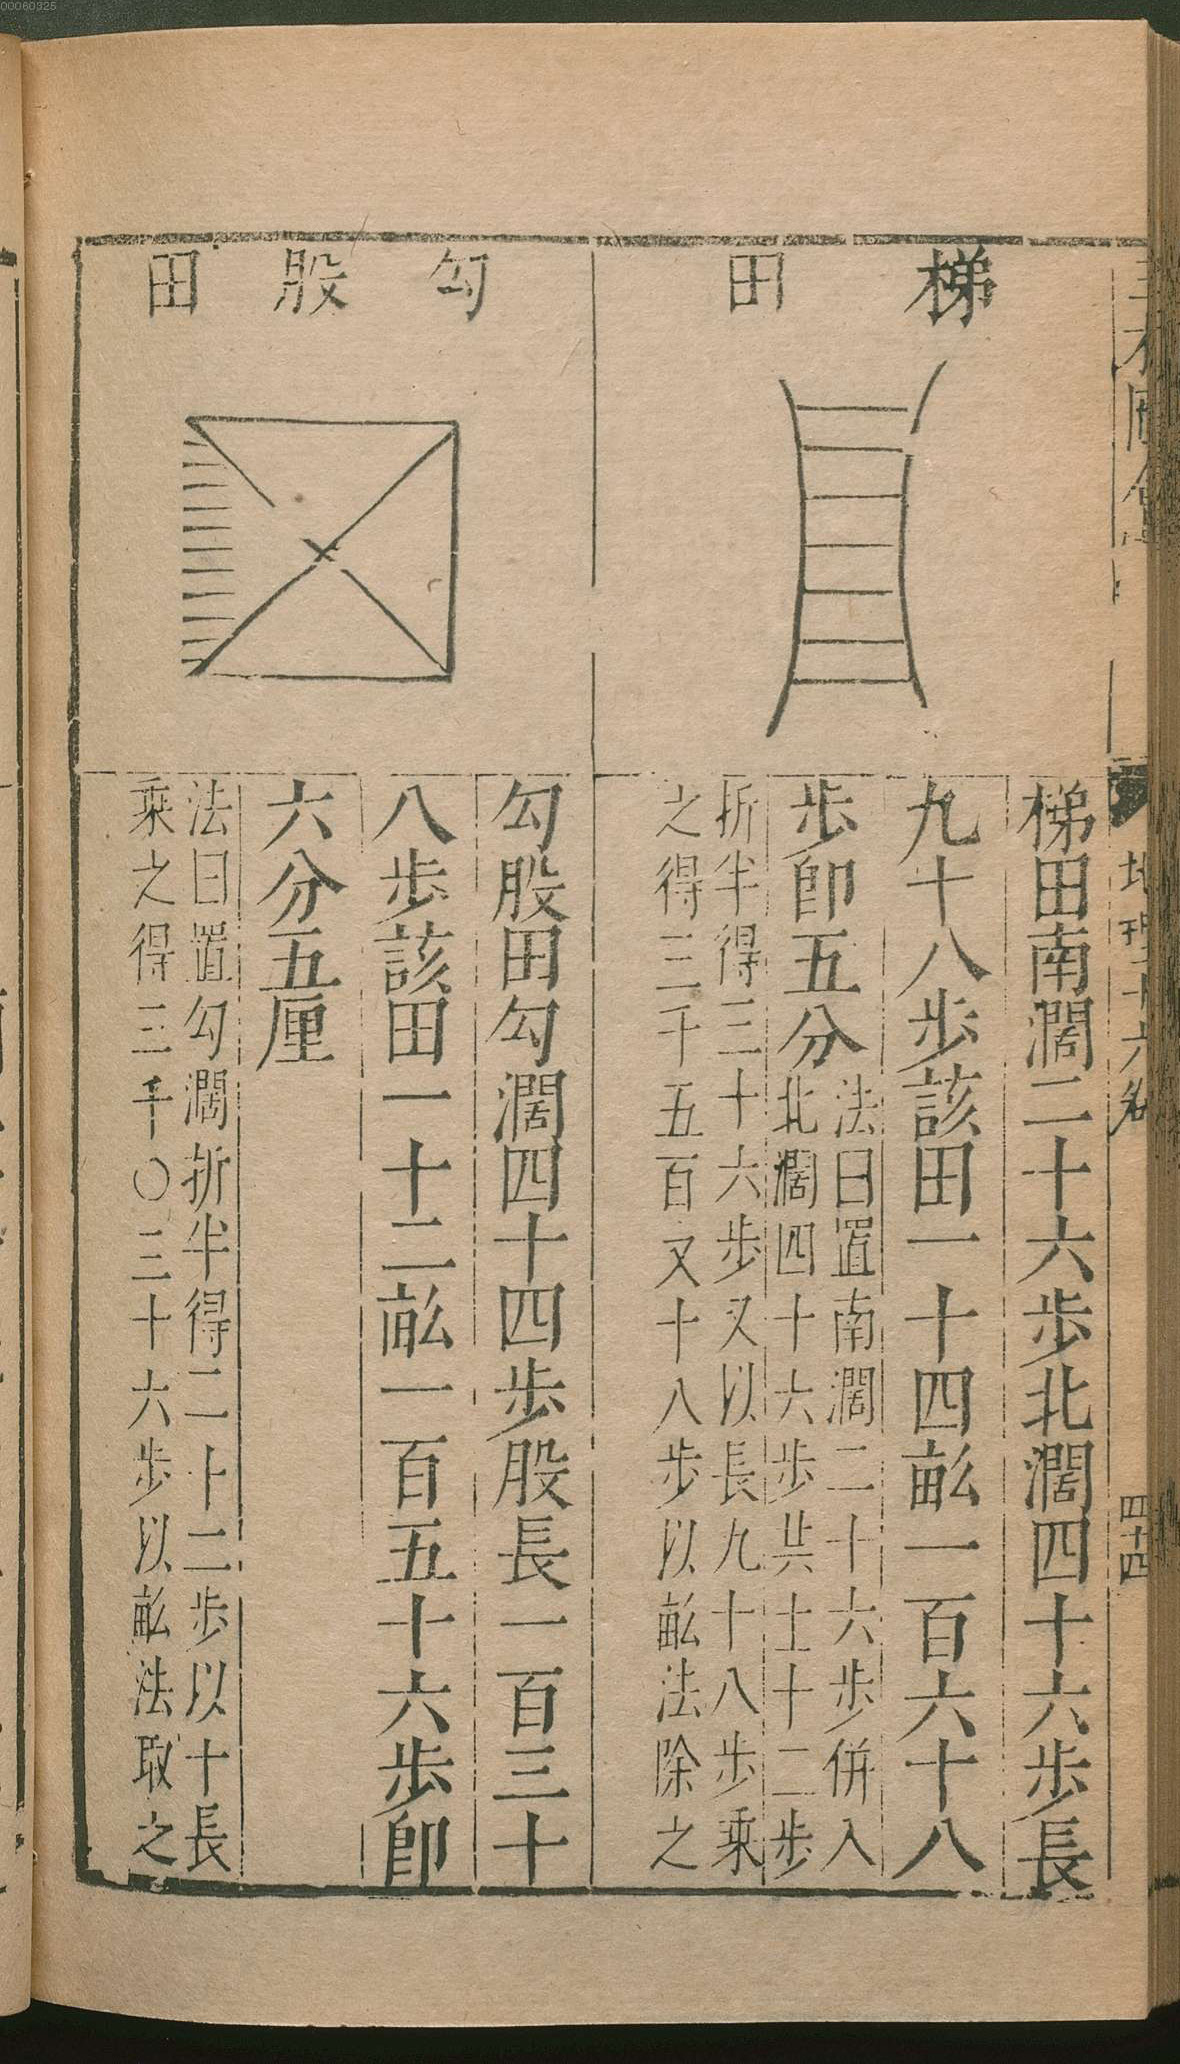 00060325
梯田
梯田南濶二十六步北濶四十六步長
九十八步該田一十四畝一百六十八
步即五分
法曰置南濶二十六步併入
北濶四十六步共士十二步
折半得三十六步又以長九十八步乘
之得三千五百又十八步以畝法除之
勾股田
勾股田勾濶四十四步股長一百三十
八步該田一十二畝一百五十六步即
六分五厘
法曰置勾濶折半得二十二步以十長
乘之得三千〇三十六步以畝法取之
地理十六卷
四十四